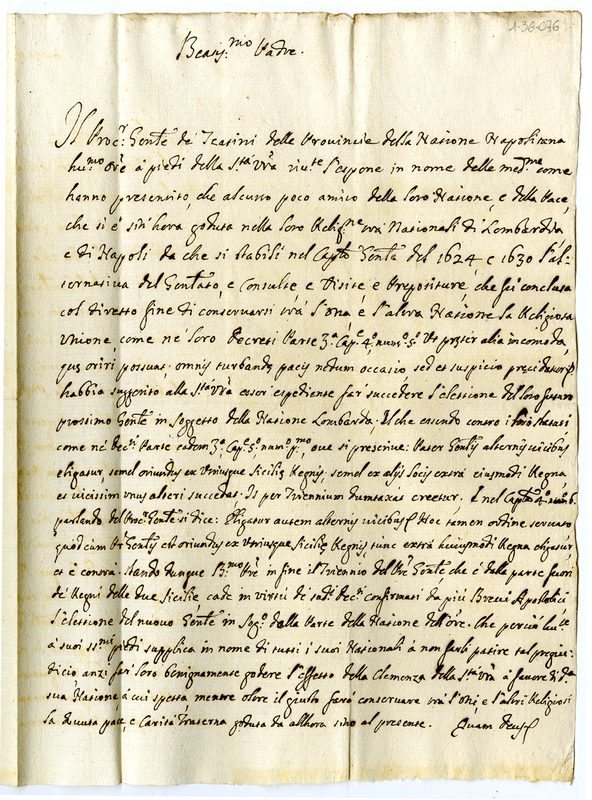 1-36-076
Beatiss:mo Padre.
Il Proc:r Gen̅le de' Teatini delle Provincie della Nazione Napolitana
hu:mo Ore à piedi della S:tà V̅ra riu:te l'espone in nome delle med:me come
hanno presentito, che alcuno poco amico della loro Nazione, e della Pace,
che si è sin'hora goduta nella loro Relig:ne trà Nationali di Lombardia
e di Napoli da che si stabilì nel Cap̅to Gen̅le del 1624, e 1630 l'al-
ternativa del Gen̅lato, e Consulte e Visite, e Prepositure, che fu conclusa
col diretto fine di conservarsi trà l'una, e l'altra Nazione la Religiosa
Unione come ne' loro Decreti Parte 3.a Cap.e 4.o num.o 5.o Ut præter alia incomoda,
quæ oriri possunt, omnis turbandæ pacis nedum occasio sed et suspicio præcidatur
habbia suggerito alla S:tà V̅ra esser espediente far succedere l'elettione del loro futuro
prossimo Gen̅le in soggetto della Nazione Lombarda; Il che essendo contro i loro statuti
come ne' Dec:ti Parte eadem 3.a Cap.e 5.o num.o p.mo, ove si prescrive: Pater Gen̅lis alternis vicibus
eligatur, semel oriundus ex Utriusque Siciliæ Regnis, semel ex alijs locis extra eiusmodi Regna,
et vicissim unus alteri succedat. Is per Triennium dumtaxat creetur. E nel Cap̅to 4.o num.o 6.
parlando del Proc:r Gen̅le si dice: Eligatur autem alternis vicibus Hoc tamen ordine servato
quod cum P̅r Gen̅lis est oriundus ex Utriusque Siciliæ Regnis, tunc extra huiusmodi Regna eligatur,
et è contrà. Stando dunque B:mo P̅re in fine il Triennio del P̅re Gen̅le, che è dalla parte fuori
de' Regni delle due Sicilie cade in virtù de' sud:i Dec:ti confirmati da più Brevi Apostolici
l'elettione del nuovo Gen̅le in Sog:o della Parte della Nazione dell'Ore. Che perciò hu:te
à suoi ss:mi piedi supplica in nome di tutti i suoi Nationali à non farli patire tal pregiu-
diCio, anzi far loro benignamente godere l'effetto della Clemenza della S:tà V̅ra à favore di d:a
sua Nazione, à cui spetta, mentre oltre il giusto farà conservare trà l'Ori, e l'altri Religiosi
la dovuta pace, e Carità fraterna goduta da allhora sino al presente. Quam Deus